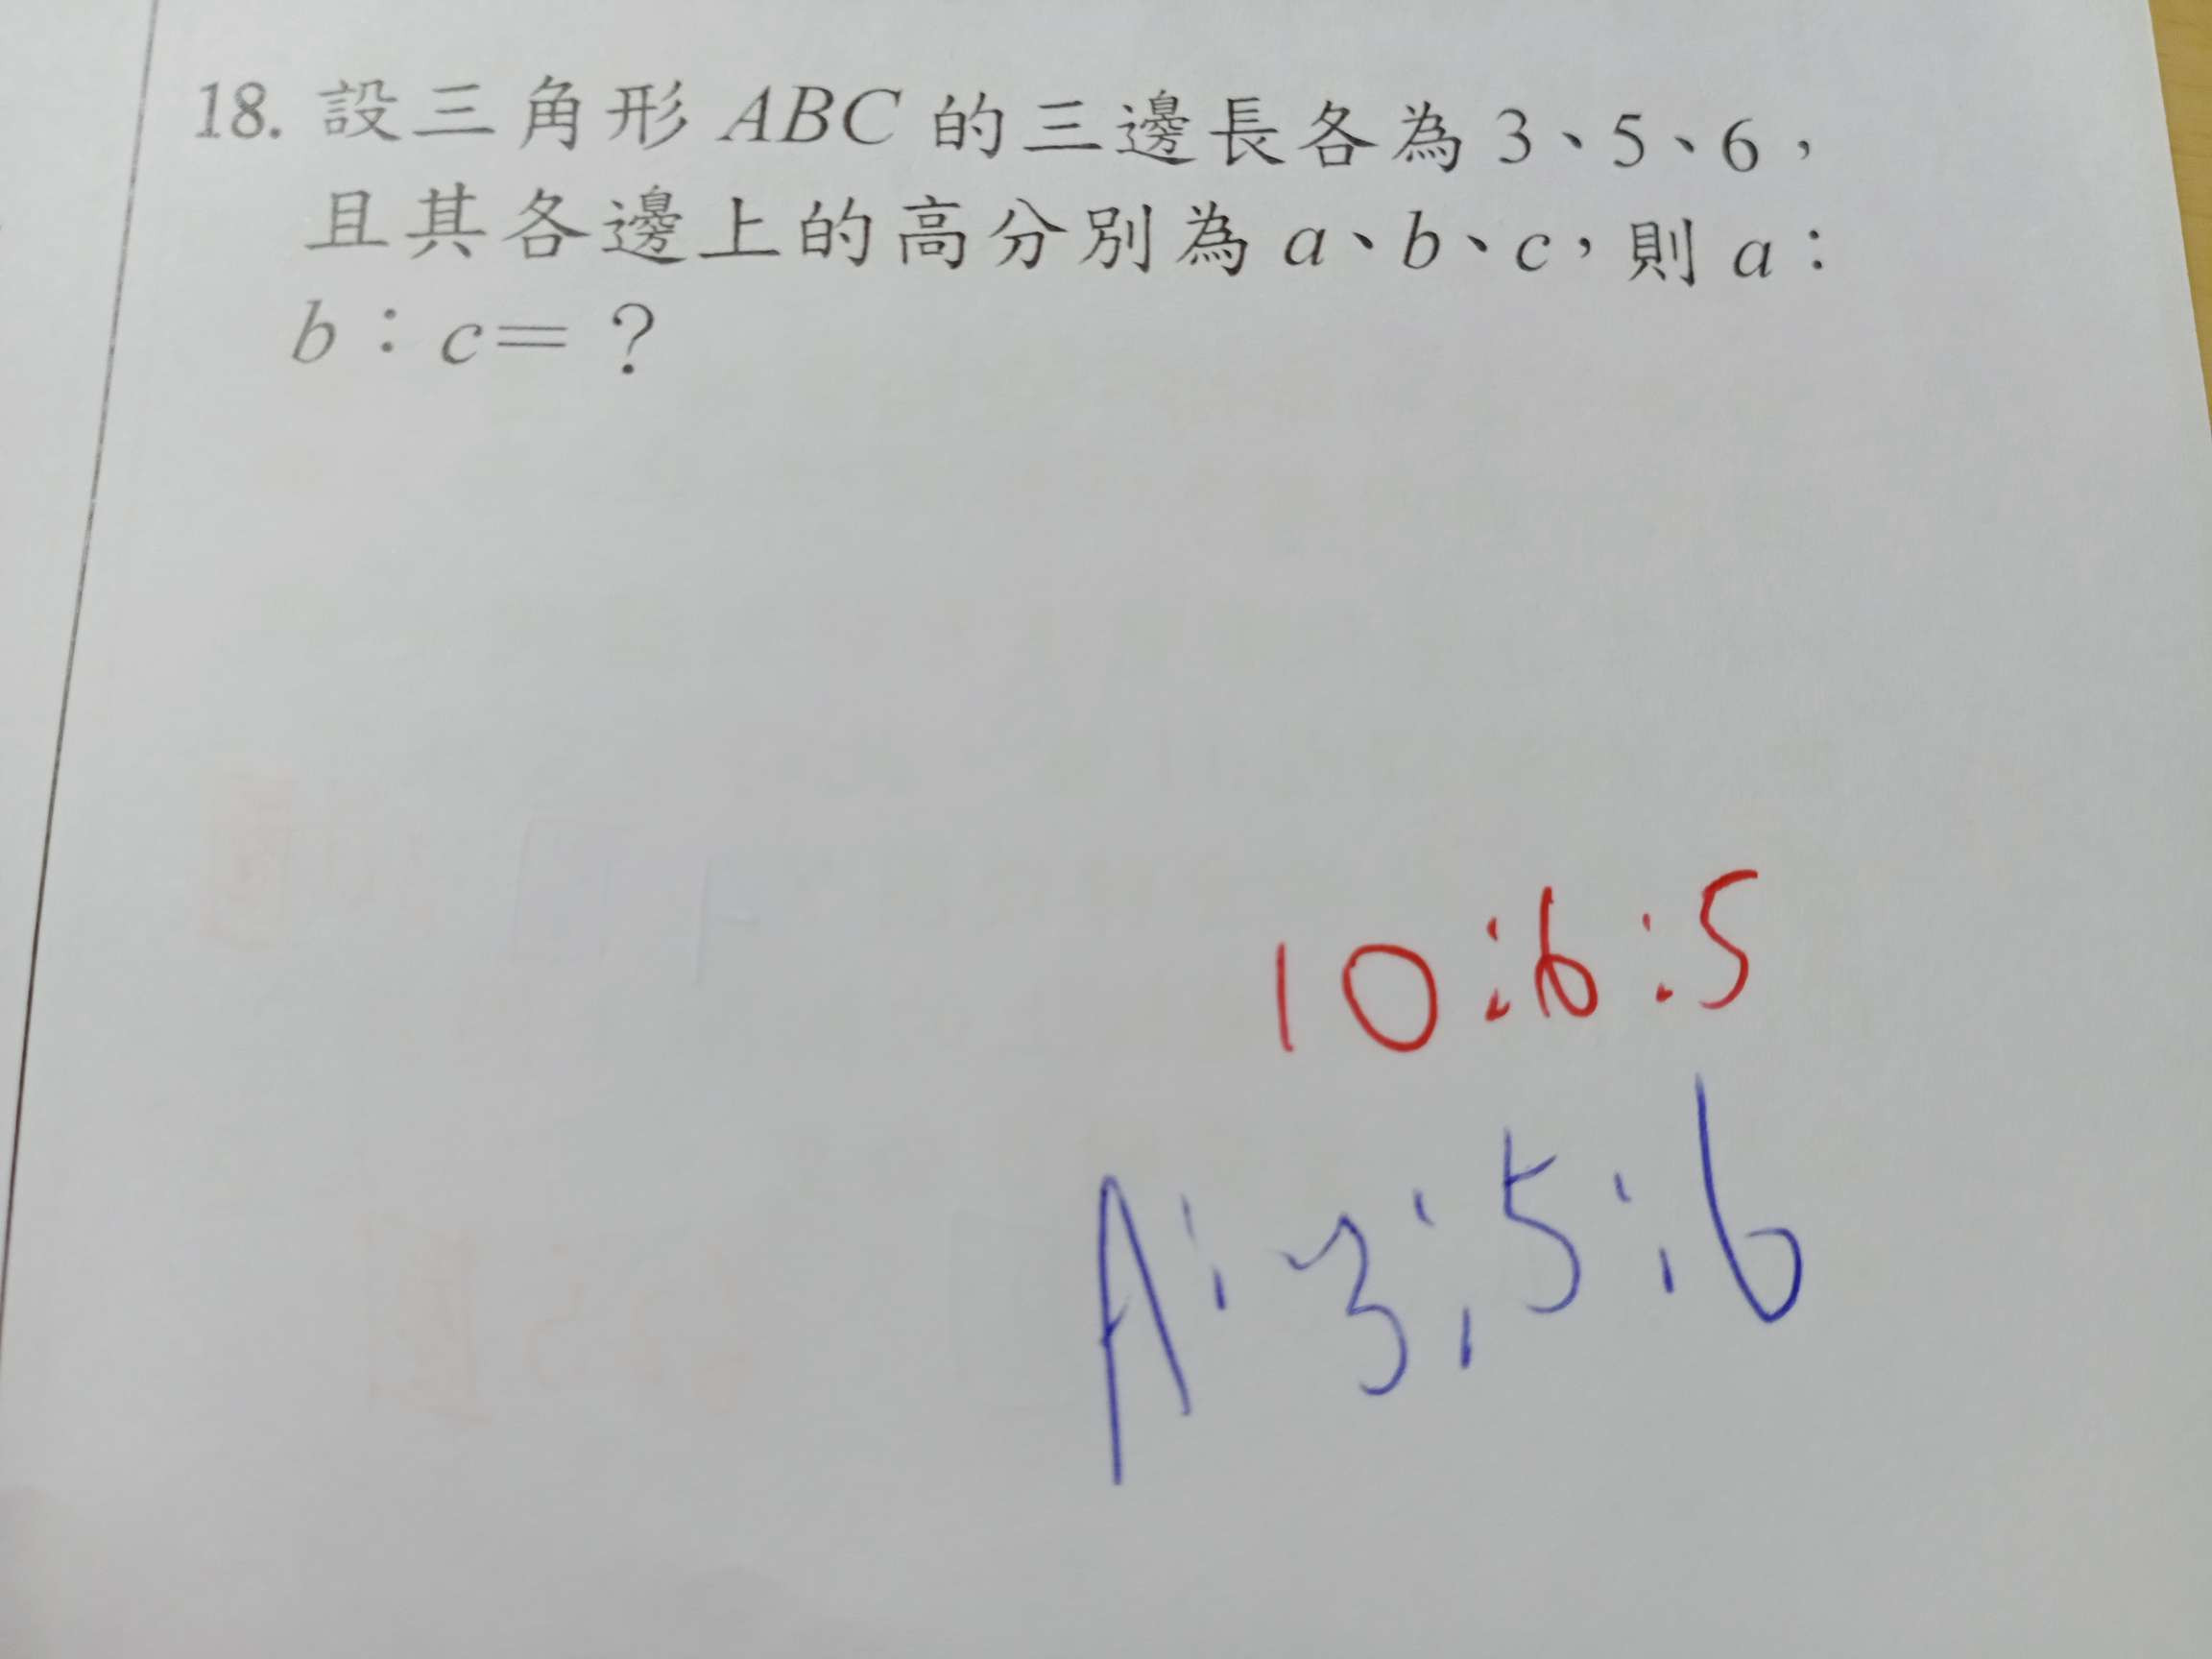 18. 設三角形 ABC 的三邊長各為 3、5、6，
且其各邊上的高分別為 a、b、c，則 a：
b：c＝？
10:6:5
A:3:5:6